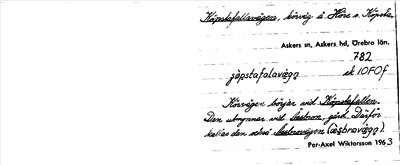 Köpstafallavägen, körväg å Höre s. Köpsta.
Askers sn, Askers hd, Örebro län.
782
jöpstafalavä̀gn ek 10F0f
Körvägen börjar vid Köpstafallen.
Den utmynnar vid Åsebron, gård. Därför
kallas den också Åsebrovägen (åsbrovägn).
Per-Axel Wiktorsson 1963